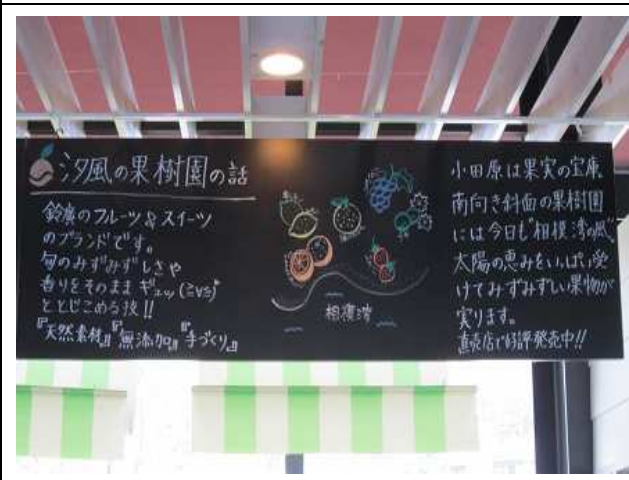 汐風の果樹園の話
鈴廣のフルーツ&スイーツ
のブランドです。
旬のみずみずしさや
香りをそのままギュッ(≧∀≦)
ととじこめる技!!
『天然素材』『無添加』『手づくり』
相模湾
小田原は果実の宝庫
南向き斜面の果樹園
には今日も"相模湾の風"
太陽の恵みをいっぱい受
けてみずみずしい果物が
実ります。
直売店で好評発売中!!